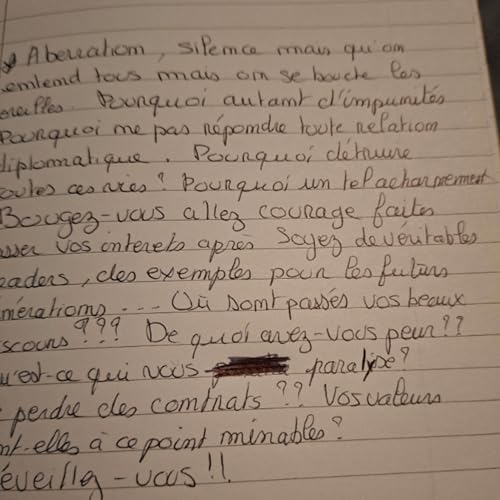 Aberration, silence mais qu'on
entend tous mais on se bouche les
oreilles. Pourquoi autant d'impunités
Pourquoi ne pas répondre toute relation
diplomatique. Pourquoi détruire
toutes ces vies? Pourquoi un tel acharnement
Bougez-vous allez courage faites
sser vos interets après Soyez de véritables
eaders, des exemples pour les futurs
nérations... Où sont passés vos beaux
scours??? De quoi avez-vous peur??
u'est-ce qui vous paralyse?
perdre des contrats?? Vos valeurs
nt-elles à ce point minables?
éveillez-vous!!